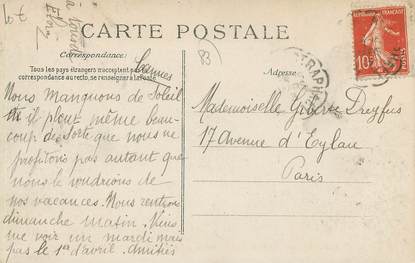 10€
à
CARTE POSTALE
Correspondance:
Tous les pays étrangers n'acceptent pas la
correspondance au recto, se renseigner à la Poste
Adresse:
83
Nous Manquons de Soleil
et il pleut même beau-
coup de sorte que nous ne
profitons pas autant que
nous le voudrions de
nos vacances. Nous rentrons
dimanche matin. Viens
me voir un mardi mais
pas le 1er d'avril. Amitiés
Mademoiselle Dreyfus
17 Avenue d'Eylau
Paris
10